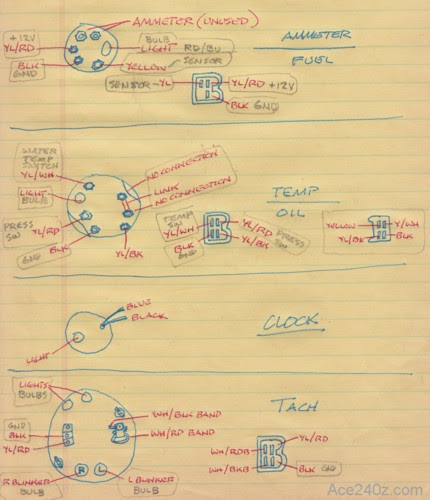 AMMETER (UNUSED)
+12V
YL/RD
BLK
GND
BULB
LIGHT RD/BU
YELLOW
SENSOR
AMMETER
FUEL
SENSOR-YL
YL/RD +12V
BLK GND
WATER
TEMP
SWITCH
YL/WH
LIGHT
BULB
PRESS
SW
YL/RD
GND
BLK
NO CONNECTION
LINK
NO CONNECTION
YL/BK
TEMP
SW
YL/WH
BLK
GND
YL/RD
PRESS
SW
YL/BK
TEMP
OIL
YELLOW
YL/BK
Y/WH
BLK
BLUE
BLACK
LIGHT
CLOCK
LIGHTS
BULBS
GND
BLK
YL/RD
R BLINKER
BULB
R
L
L BLINKER
BULB
WH/BLK BAND
WH/RD BAND
TACH
WH/RDB
WH/BKB
YL/RD
BLK GND
Ace240z.com